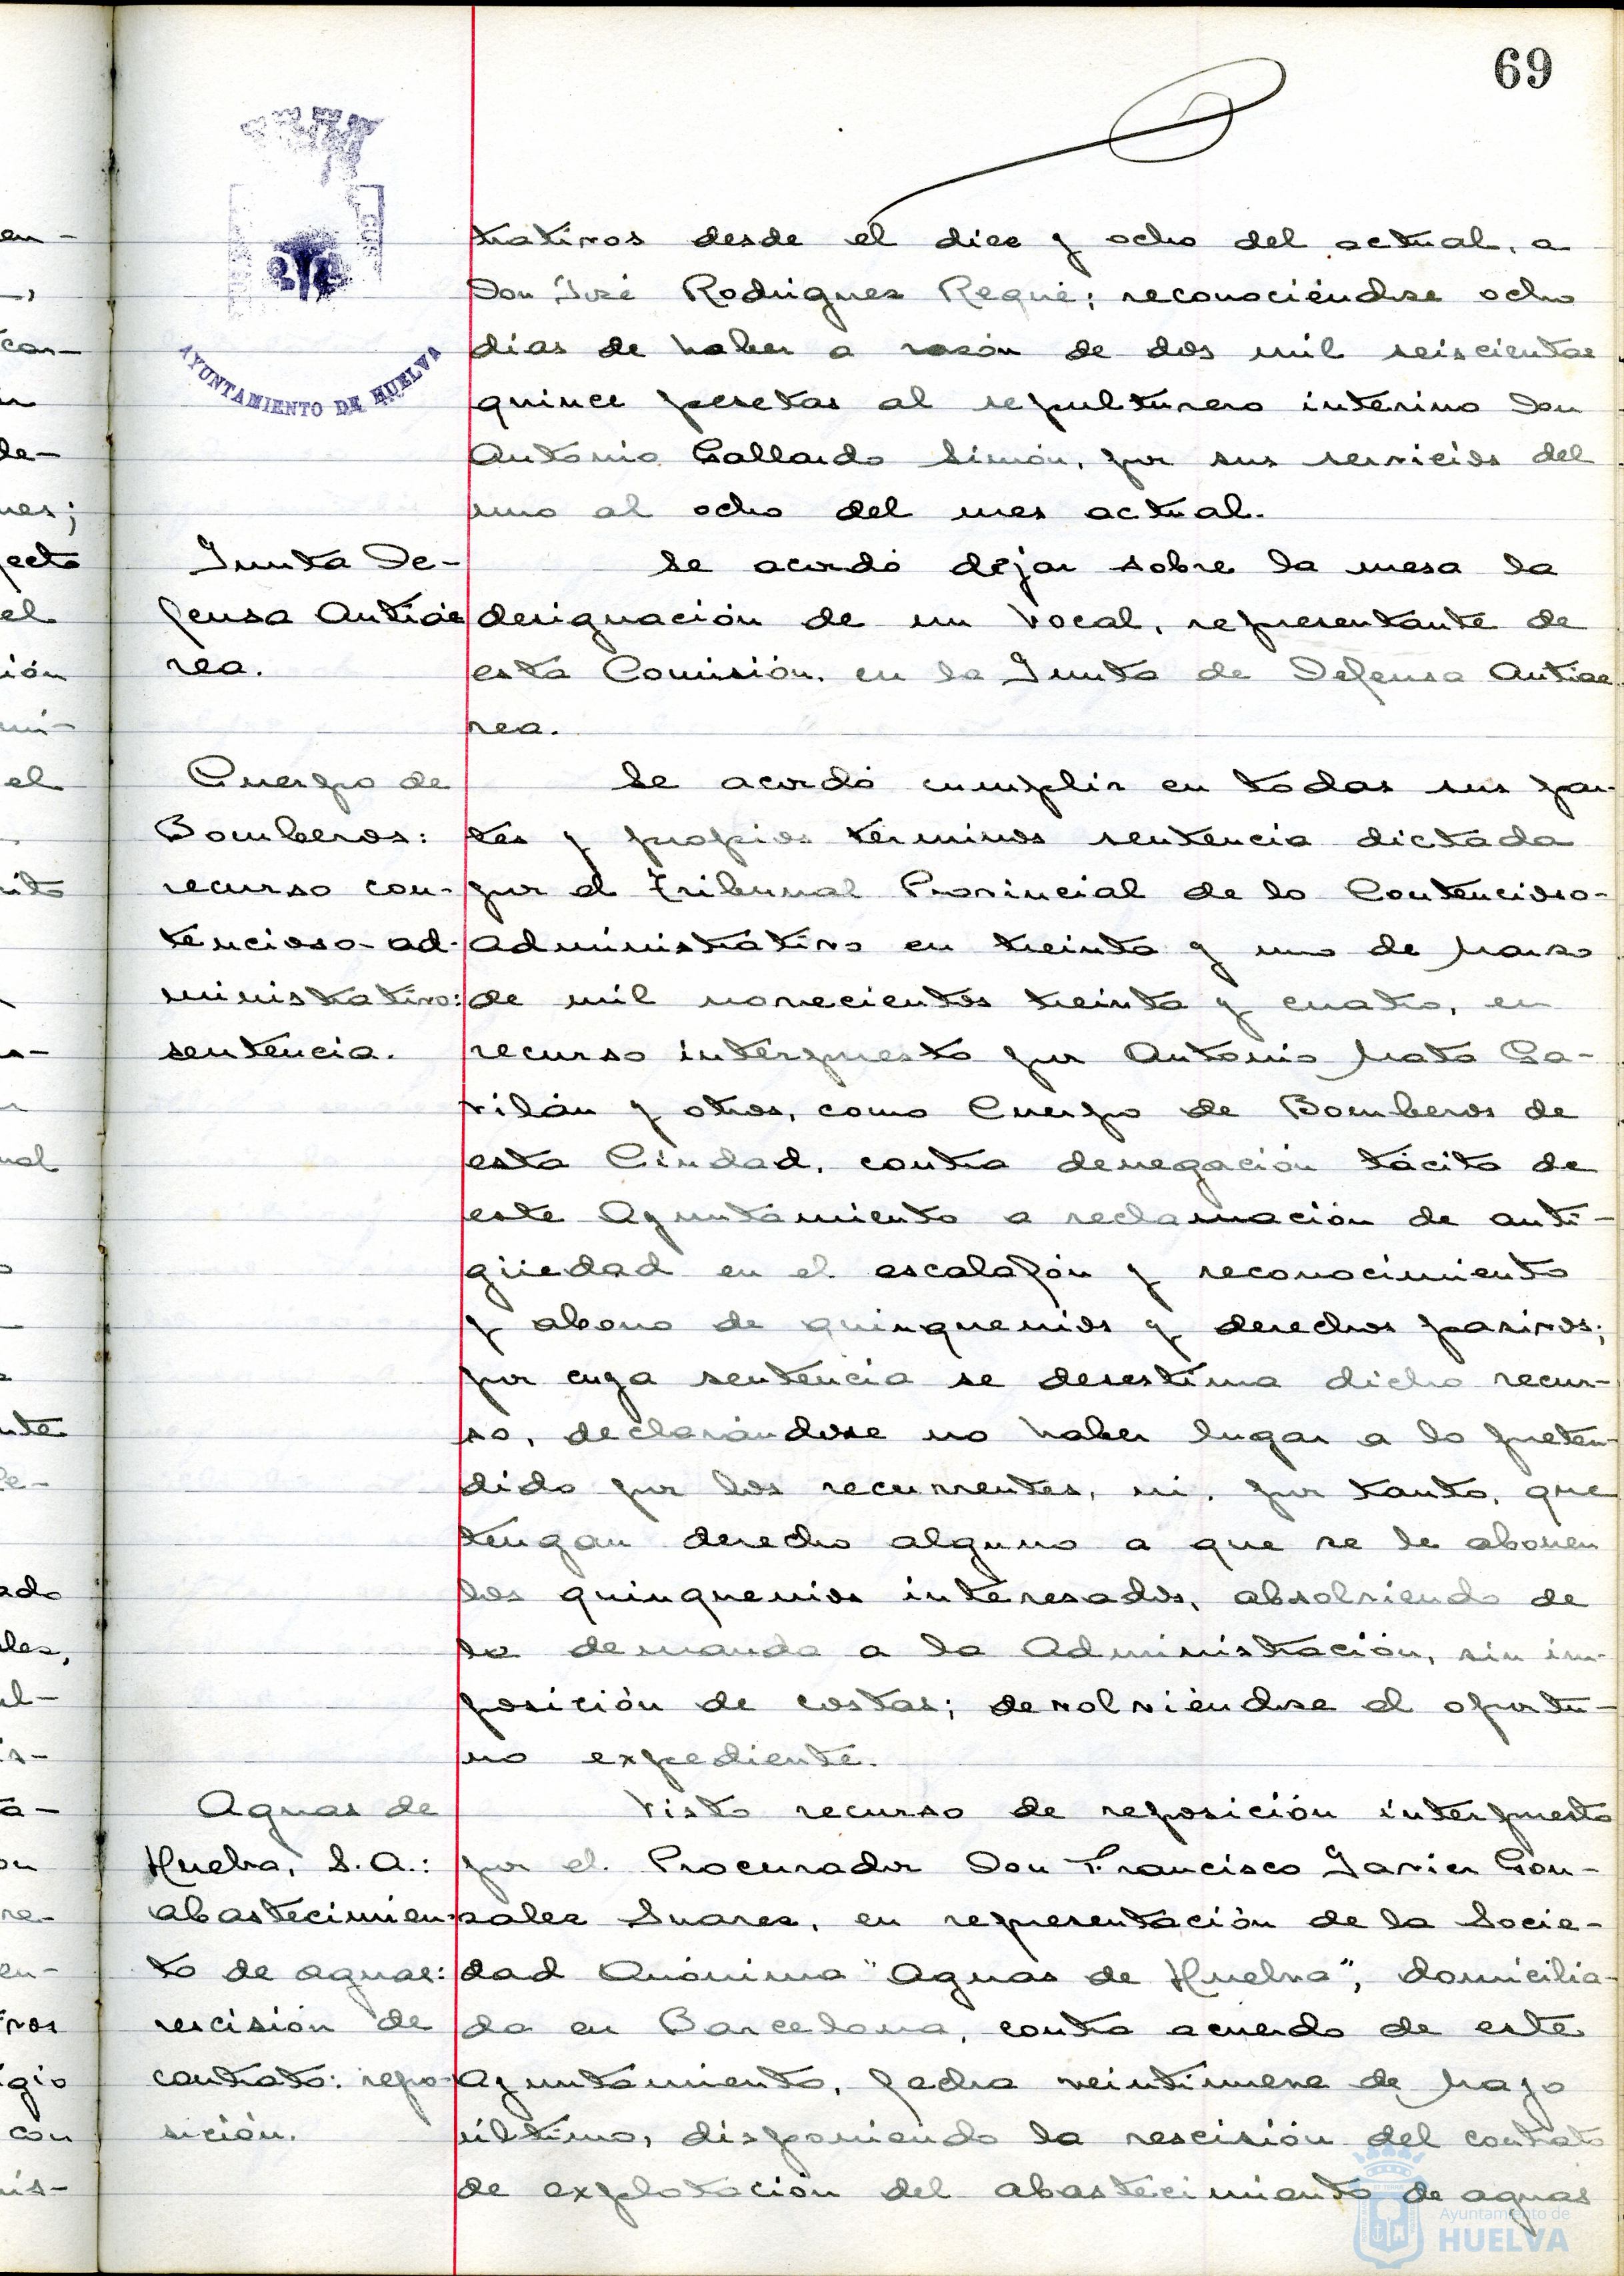 69
AYUNTAMIENTO DE HUELVA
trativos desde el diez y ocho del actual, a
Don José Rodríguez Requé; reconociéndose ocho
días de haber a razón de dos mil seiscientas
quince pesetas al sepulturero interino Don
Antonio Gallardo Simón, por sus servicios del
uno al ocho del mes actual.
Junta De-
fensa Antiaé
rea.
Se acordó dejar sobre la mesa la
designación de un Vocal, representante de
esta Comisión, en la Junta de Defensa Antiaé
rea.
Cuerpo de
Bomberos:
recurso con-
tencioso-ad-
ministrativo:
sentencia.
Se acordó cumplir en todas sus par-
tes y propios términos sentencia dictada
por el Tribunal Provincial de lo Contencioso-
administrativo en treinta y uno de Marzo
de mil novecientos treinta y cuatro, en
recurso interpuesto por Antonio Mata Ga-
vilán y otros, como Cuerpo de Bomberos de
esta Ciudad, contra denegación tácita de
este Ayuntamiento a reclamación de anti-
güedad en el escalafón y reconocimiento
y abono de quinquenios y derechos pasivos;
por cuya sentencia se desestima dicho recur-
so, declarándose no haber lugar a lo preten-
dido por los recurrentes, ni, por tanto, que
tengan derecho alguno a que se le abonen
los quinquenios interesados, absolviendo de
la demanda a la Administración, sin im-
posición de costas; devolviéndose el oportu-
no expediente.
Aguas de
Huelva, S.A.:
abastecimien-
to de aguas:
rescisión de
contrato: repo-
sición.
Visto recurso de reposición interpuesto
por el Procurador Don Francisco Javier Gon-
zalez Suarez, en representación de la Socie-
dad Anónima "Aguas de Huelva", domicilia-
da en Barcelona, contra acuerdo de este
Ayuntamiento, fecha veintinueve de Mayo
último, disponiendo la rescisión del contrato
de explotación del abastecimiento de aguas
Ayuntamiento de
HUELVA